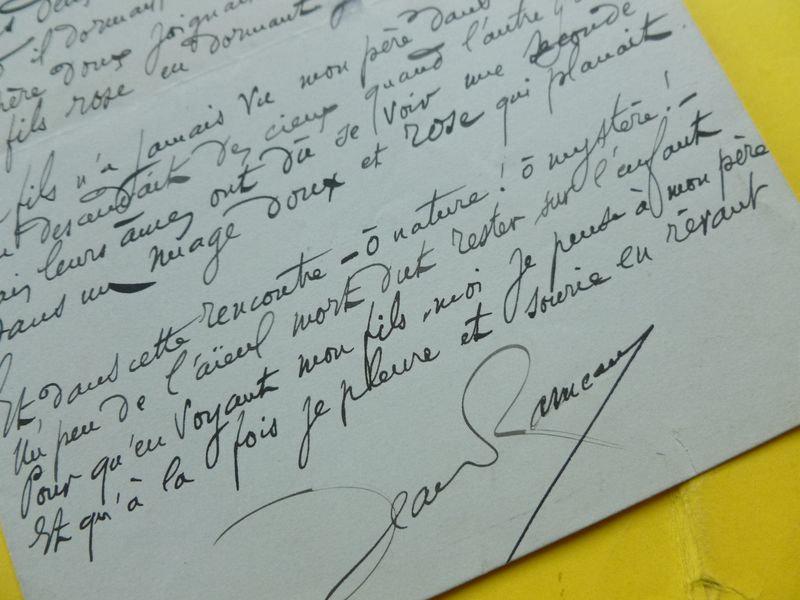 il dormait,
père doux joignait
fils rose en dormant
fils n'a jamais vu mon père dans
descendait des cieux quand l'autre
leurs âmes ont dû se voir une seconde
dans un nuage doux et rose qui planait.
Et dans cette rencontre - ô nature! ô mystère! -
Un peu de l'aïeul mort dut rester sur l'enfant
Pour qu'en voyant mon fils, moi je pense à mon père
Et qu'à la fois je pleure et sourie en rêvant
Jean Rameau